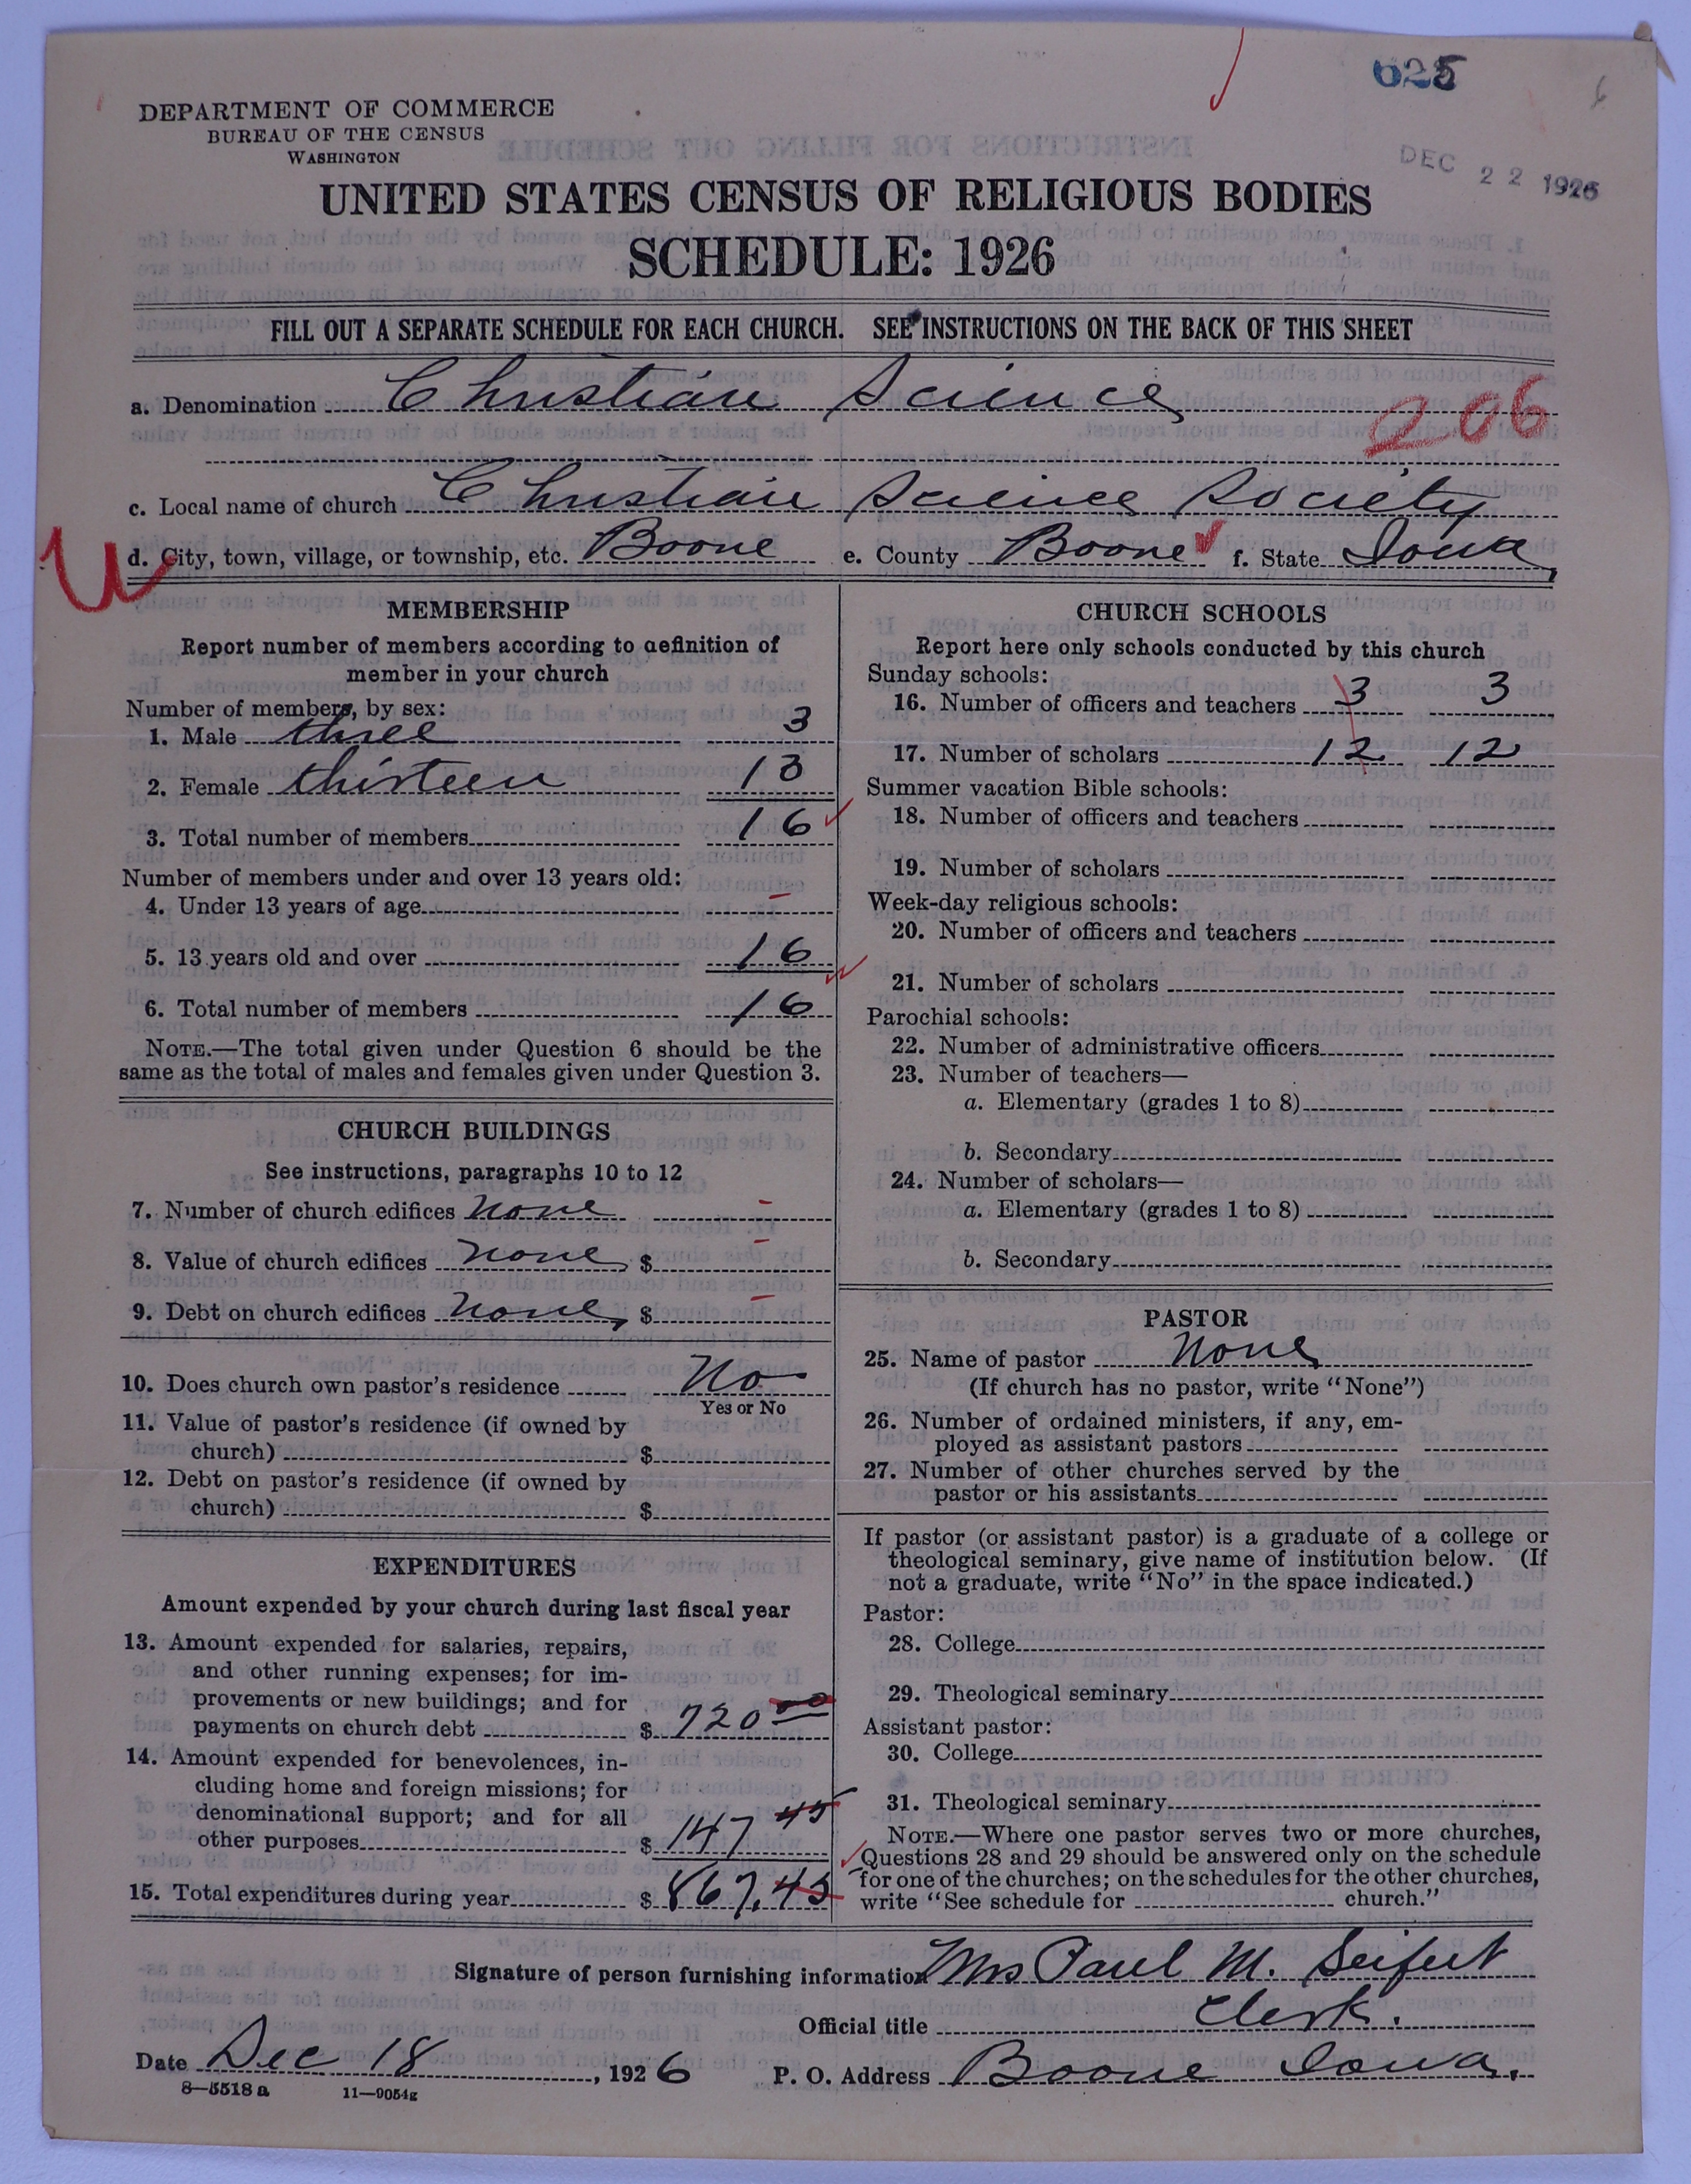 625
DEPARTMENT OF COMMERCE
BUREAU OF THE CENSUS
WASHINGTON
DEC 22 1926
UNITED STATES CENSUS OF RELIGIOUS BODIES
SCHEDULE: 1926
FILL OUT A SEPARATE SCHEDULE FOR EACH CHURCH. SEE INSTRUCTIONS ON THE BACK OF THIS SHEET
a. Denomination Christian Science
206
c. Local name of church Christian Science Society
d. City, town, village, or township, etc. Boone e. County Boone f. State Iowa
MEMBERSHIP
Report number of members according to definition of
member in your church
Number of members, by sex:
1. Male three 3
2. Female thirteen 13
3. Total number of members 16
Number of members under and over 13 years old:
4. Under 13 years of age -
5. 13 years old and over 16
6. Total number of members 16
NOTE.—The total given under Question 6 should be the
same as the total of males and females given under Question 3.
CHURCH BUILDINGS
See instructions, paragraphs 10 to 12
7. Number of church edifices none -
8. Value of church edifices none $ -
9. Debt on church edifices none, $ -
10. Does church own pastor's residence No
Yes or No
11. Value of pastor's residence (if owned by
church) $
12. Debt on pastor's residence (if owned by
church) $
EXPENDITURES
Amount expended by your church during last fiscal year
13. Amount expended for salaries, repairs,
and other running expenses; for im-
provements or new buildings; and for
payments on church debt $ 720 00
14. Amount expended for benevolences, in-
cluding home and foreign missions; for
denominational support; and for all
other purposes $ 147 45
15. Total expenditures during year $ 867.45
CHURCH SCHOOLS
Report here only schools conducted by this church
Sunday schools:
16. Number of officers and teachers 3 3
17. Number of scholars 12 12
Summer vacation Bible schools:
18. Number of officers and teachers
19. Number of scholars
Week-day religious schools:
20. Number of officers and teachers
21. Number of scholars
Parochial schools:
22. Number of administrative officers
23. Number of teachers—
a. Elementary (grades 1 to 8)
b. Secondary
24. Number of scholars—
a. Elementary (grades 1 to 8)
b. Secondary
PASTOR
25. Name of pastor None
(If church has no pastor, write "None")
26. Number of ordained ministers, if any, em-
ployed as assistant pastors
27. Number of other churches served by the
pastor or his assistants
If pastor (or assistant pastor) is a graduate of a college or
theological seminary, give name of institution below. (If
not a graduate, write "No" in the space indicated.)
Pastor:
28. College
29. Theological seminary
Assistant pastor:
30. College
31. Theological seminary
NOTE.—Where one pastor serves two or more churches,
Questions 28 and 29 should be answered only on the schedule
for one of the churches; on the schedules for the other churches,
write "See schedule for church."
Signature of person furnishing information Mrs Paul M. Seifert
Official title Clerk.
Date Dec 18, 1926 P. O. Address Boone Iowa.
8—5518 a 11—9054g